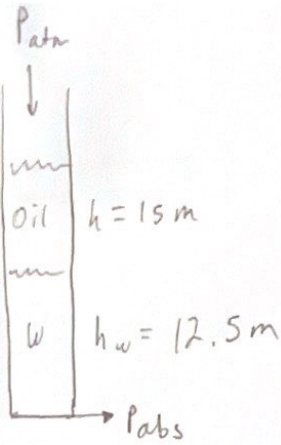 Patm
Oil h = 15 m
W h_w = 12.5 m
Pabs